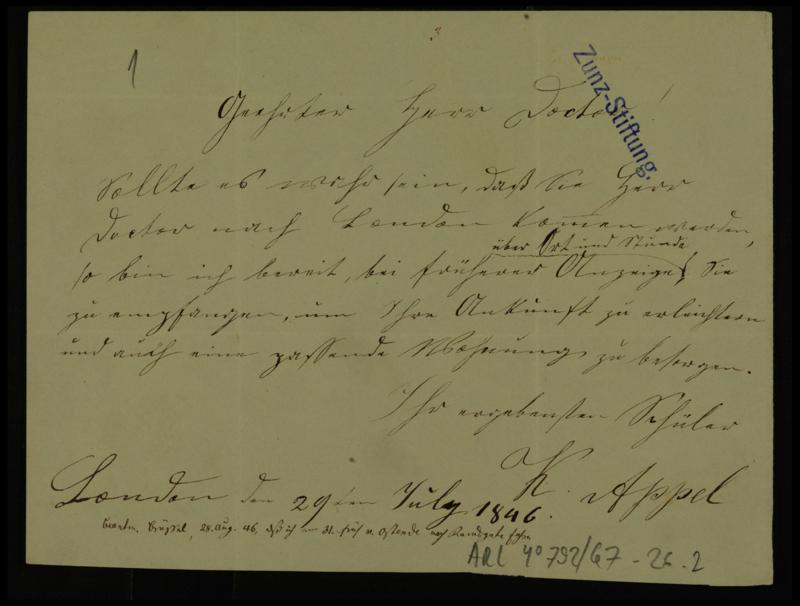 1
Zunz-Stiftung.
Geehrter Herr Doctor!
Sollte es wahr sein, daß Sie Herr
Doctor nach London kommen werden,
über Ort und Stunde
so bin ich bereit, bei früherer Anzeige Sie
zu empfangen, um Ihre Ankunft zu erleichtern
und auch eine passende Wohnung zu besorgen.
Ihr ergebensten Schüler
K. Appel
London den 29ten July 1846.
beantw. Brüssel, 28. Aug. 46, daß ich am 31. früh v. Ostende nach Ramsgate
ARC 4° 792/G7-26.2